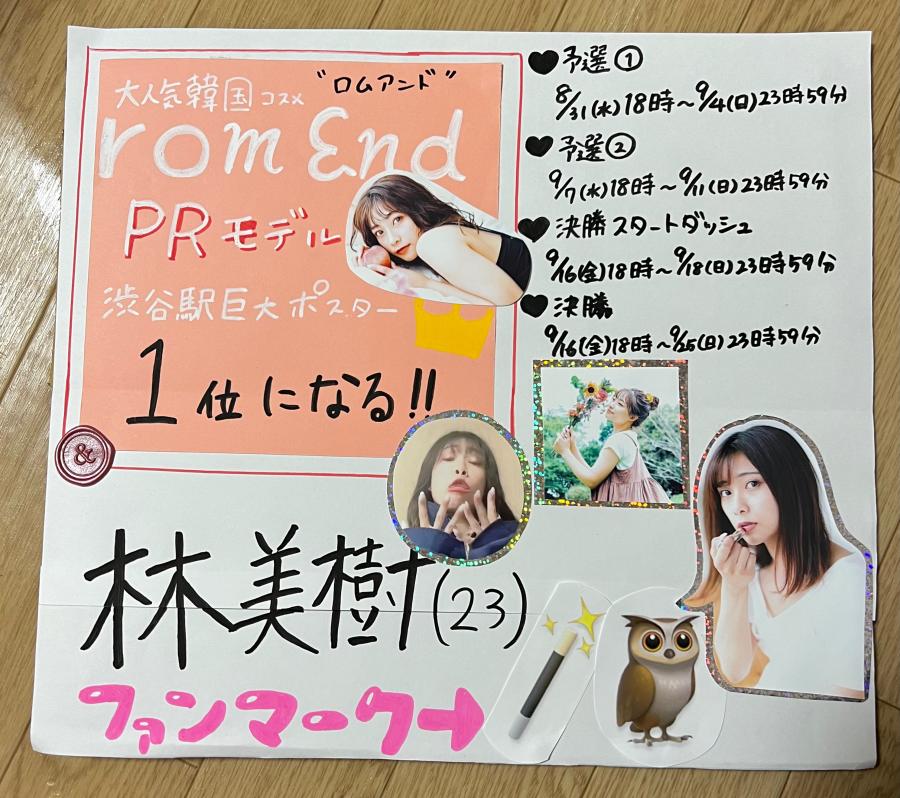 大人気韓国コスメ
"ロムアンド"
rom &nd
PRモデル
渋谷駅巨大ポスター
1位になる!!
&
♥予選①
8/31(水)18時〜9/4(日)23時59分
♥予選②
9/7(水)18時〜9/11(日)23時59分
♥決勝スタートダッシュ
9/16(金)18時〜9/18(日)23時59分
♥決勝
9/16(金)18時〜9/25(日)23時59分
林美樹(23)
ファンマーク→